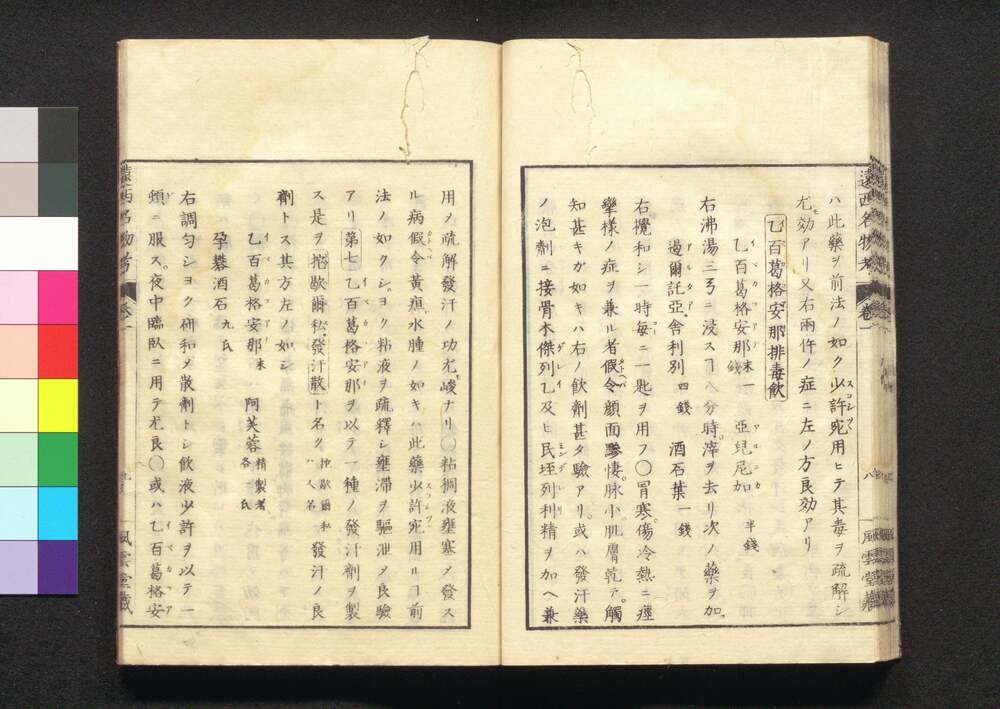 ハ此藥ヲ前法ノ如ク少許宛用ヒテ其毒ヲ疏解シ
尤効アリ又右兩件ノ症ニ左ノ方良効アリ
乙百葛格安那排毒飲
乙百葛格安那末一錢 亞兒尼加半錢
右沸湯三弓ニ浸スヿ八分時滓ヲ去リ次ノ藥ヲ加
過爾託亞舎利別四錢 酒石葉一錢
右攪和シ一時毎ニ一匙ヲ用フ〇冒寒傷冷熱ニ痙
攣様ノ症ヲ兼ル者假令顔面黲悽脉小肌層乾テ觸
知甚キガ如キハ右ノ飲劑甚タ驗アリ或ハ發汗藥
ノ泡劑ニ接骨木傑列乙及ヒ民垤列利精ヲ加ヘ兼
遠西名物考 卷一 八 風雲堂藏
用ヲ疏解發汗ノ功尤峻ナリ〇粘稠液壅塞メ發ス
ル病假令ハ黄疸水腫ノ如キハ此藥少許宛用ルヿ前
法ノ如クシヨク粘液ヲ疏釋シ壅滯ヲ驅泄メ良驗
アリ 第七 乙百葛格安那ヲ以テ一種ノ發汗劑ヲ製
ス是ヲ 控歇爾私發汗散 ト名ク 控歇爾私ハ人名 發汗ノ良
劑トス其方左ノ如シ
乙百葛格安那末 阿芙蓉精製者各氏
孕礬酒石九氏
右調勻シヨク研和メ散劑トシ飲液少許ヲ以テ一
頓ニ服ス夜中臨臥ニ用テ尤良〇或ハ乙百葛格安
遠西名物考 卷一 風雲堂藏